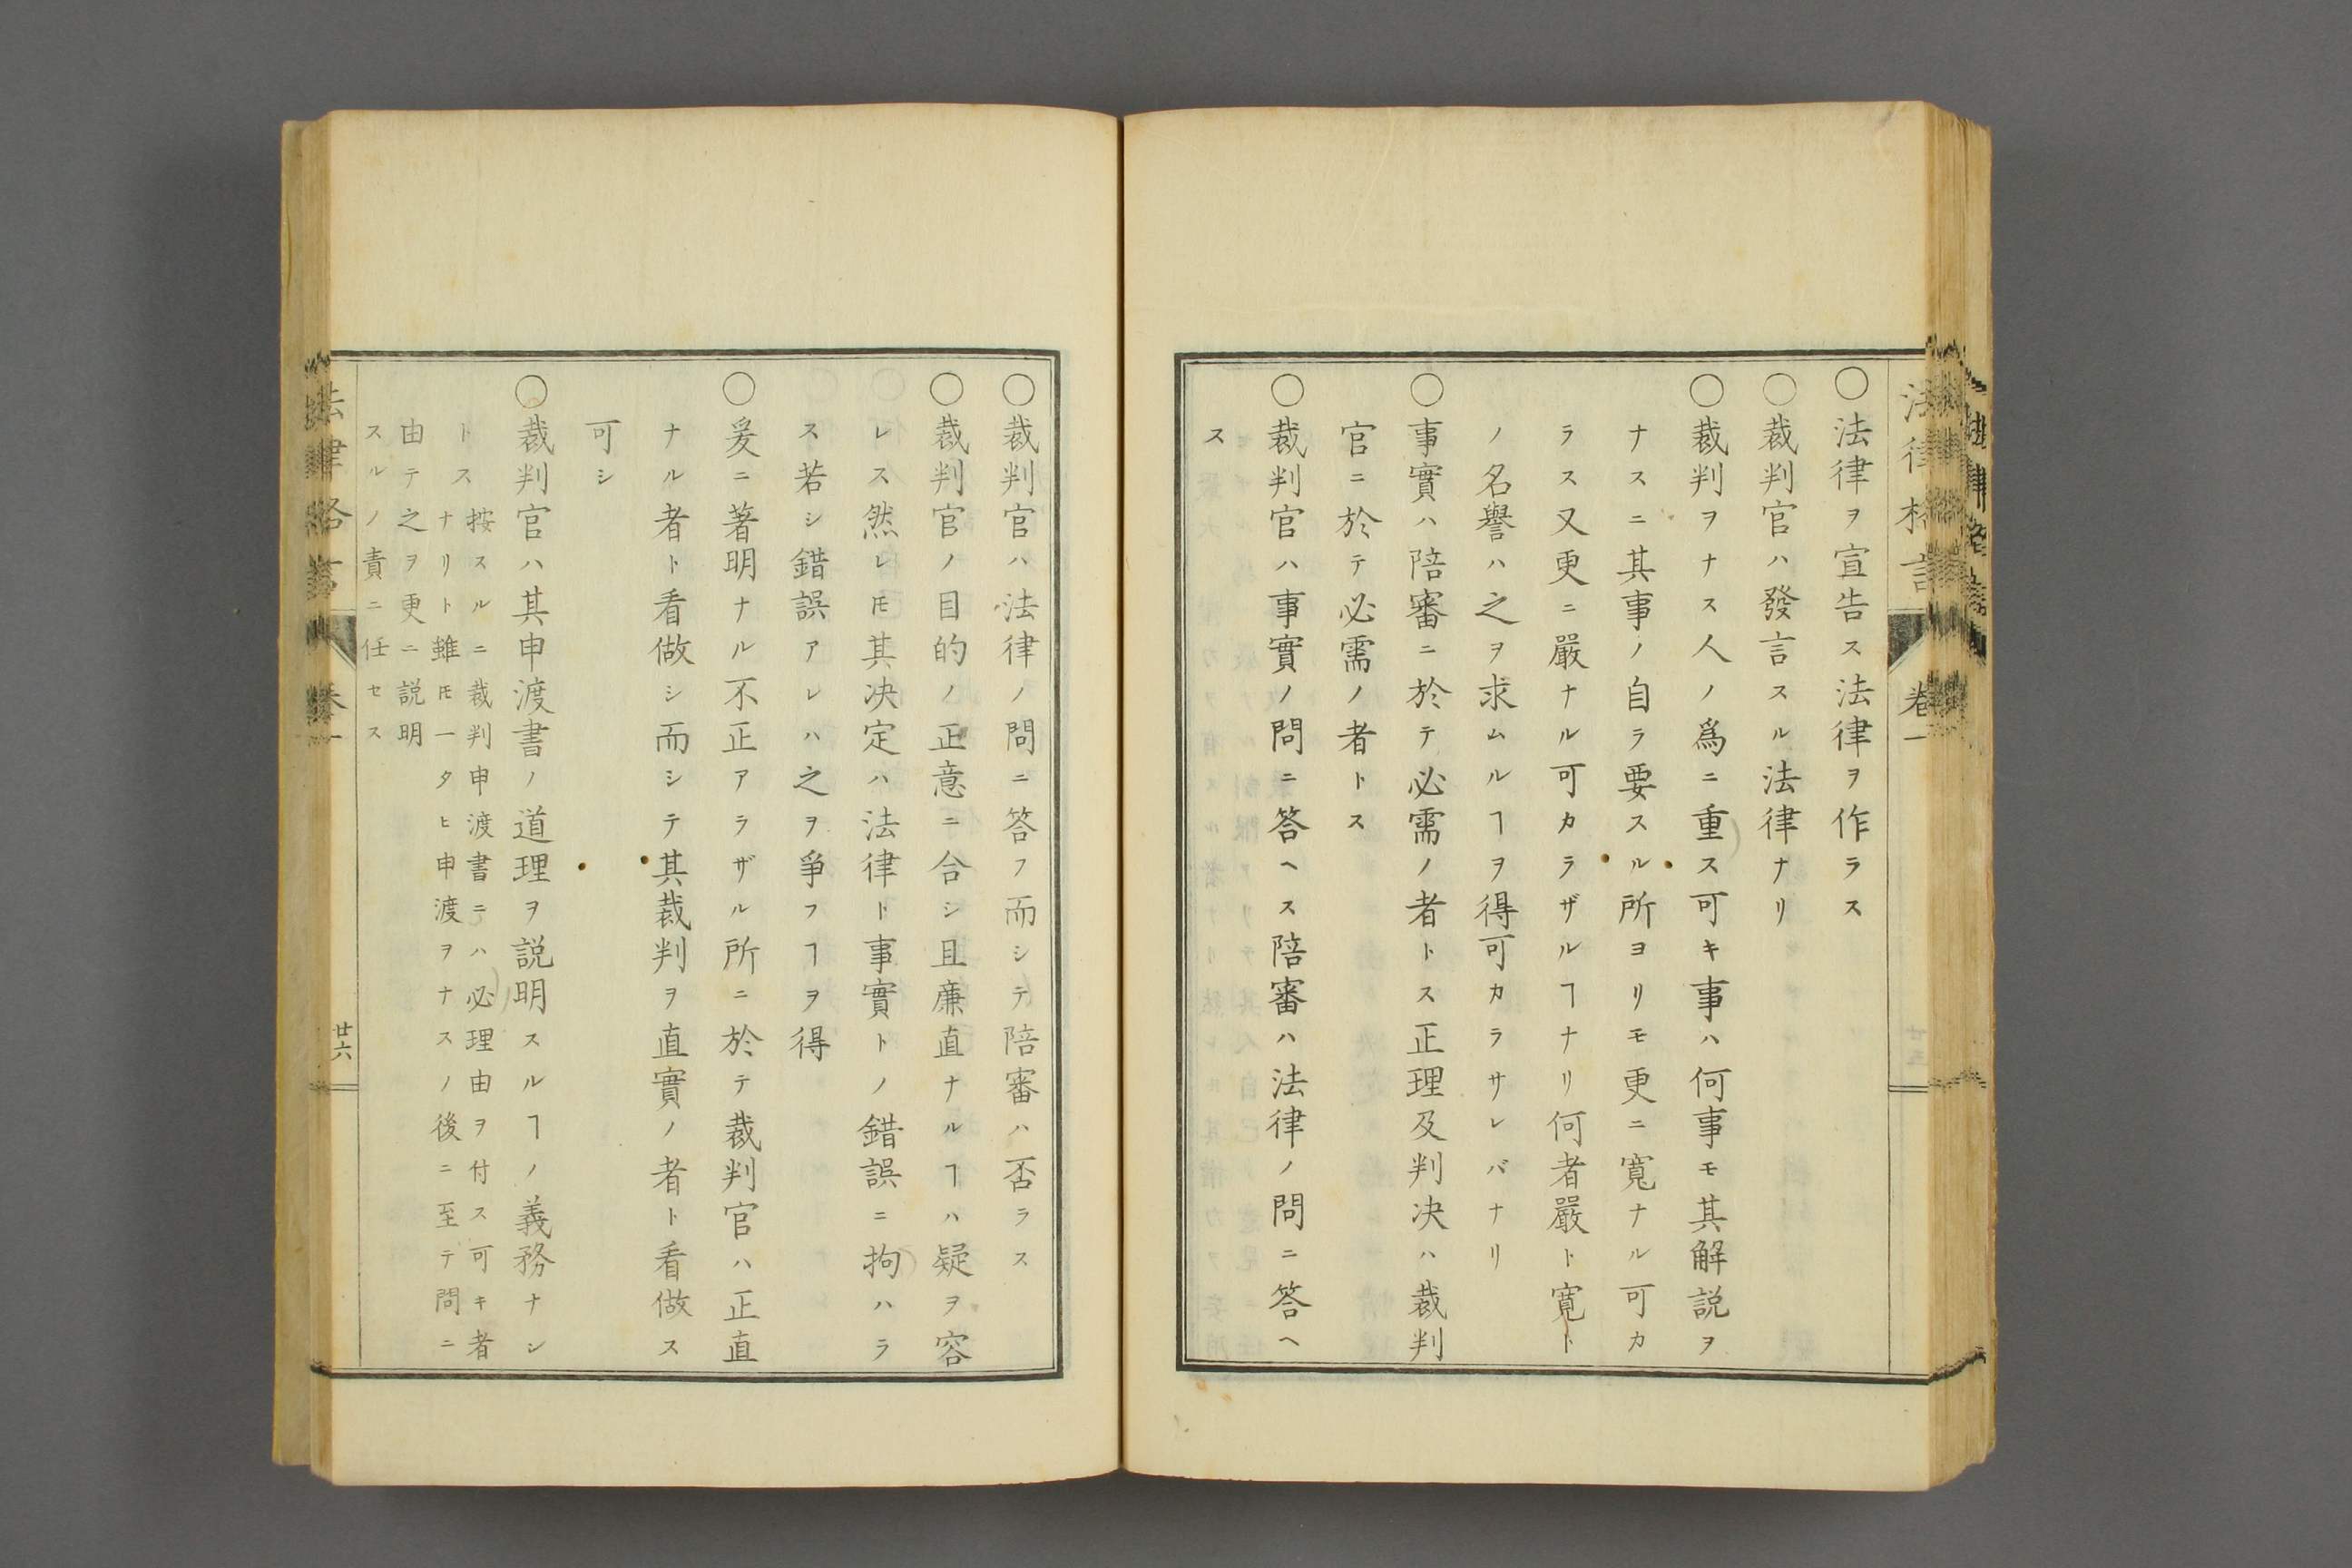 法律格言
卷一
〇法律ヲ宣告ス法律ヲ作ラス
〇裁判官ハ發言スル法律ナリ
〇裁判ヲナス人ノ爲ニ重ス可キ事ハ何事モ其解説ヲ
ナスニ其事ノ自ラ要スル所ヨリモ更ニ寬ナル可カ
ラス又更ニ嚴ナル可カラザルヿナリ何者嚴ト寬ト
ノ名譽ハ之ヲ求ムルヿヲ得可カラサレバナリ
〇事實ハ陪審ニ於テ必需ノ者トス正理及判决ハ裁判
官ニ於テ必需ノ者トス
〇裁判官ハ事實ノ問ニ答ヘス陪審ハ法律ノ問ニ答ヘ
ス
〇裁判官ハ法律ノ問ニ答フ而シテ陪審ハ否ラス
〇裁判官ノ目的ノ正意ニ合シ且廉直ナルヿハ疑ヲ容
レス然レ𪜈其决定ハ法律ト事實トノ錯誤ニ拘ハラ
ス若シ錯誤アレハ之ヲ爭フヿヲ得
〇爰ニ著明ナル不正アラザル所ニ於テ裁判官ハ正直
ナル者ト看做シ而シテ其裁判ヲ直實ノ者ト看做ス
可シ
〇裁判官ハ其申渡書ノ道理ヲ説明スルヿノ義務ナシ
トス
按スルニ裁判申渡書ニハ必理由ヲ付ス可キ者
ナリト雖𪜈一タヒ申渡ヲナスノ後ニ至テ問ニ
由テ之ヲ更ニ説明
スルノ責ニ任セス
法律格言
卷一
廿六